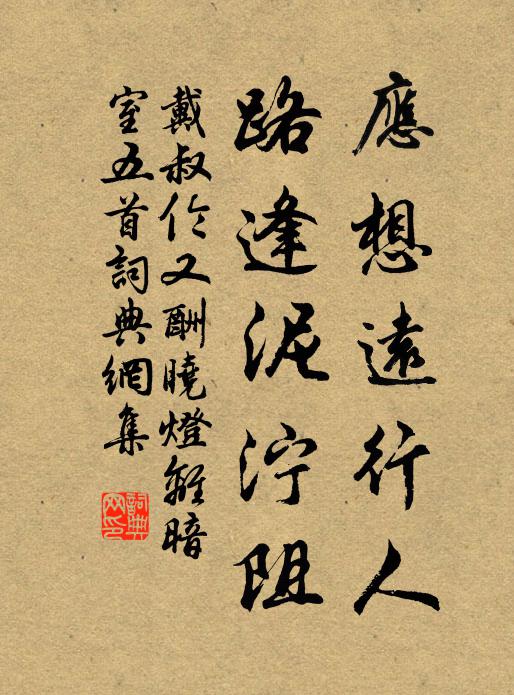 應想遠行人
路逢泥泞阻
戴叔伦又酬曉燈離暗
室五首詞典網集
詞典
网印